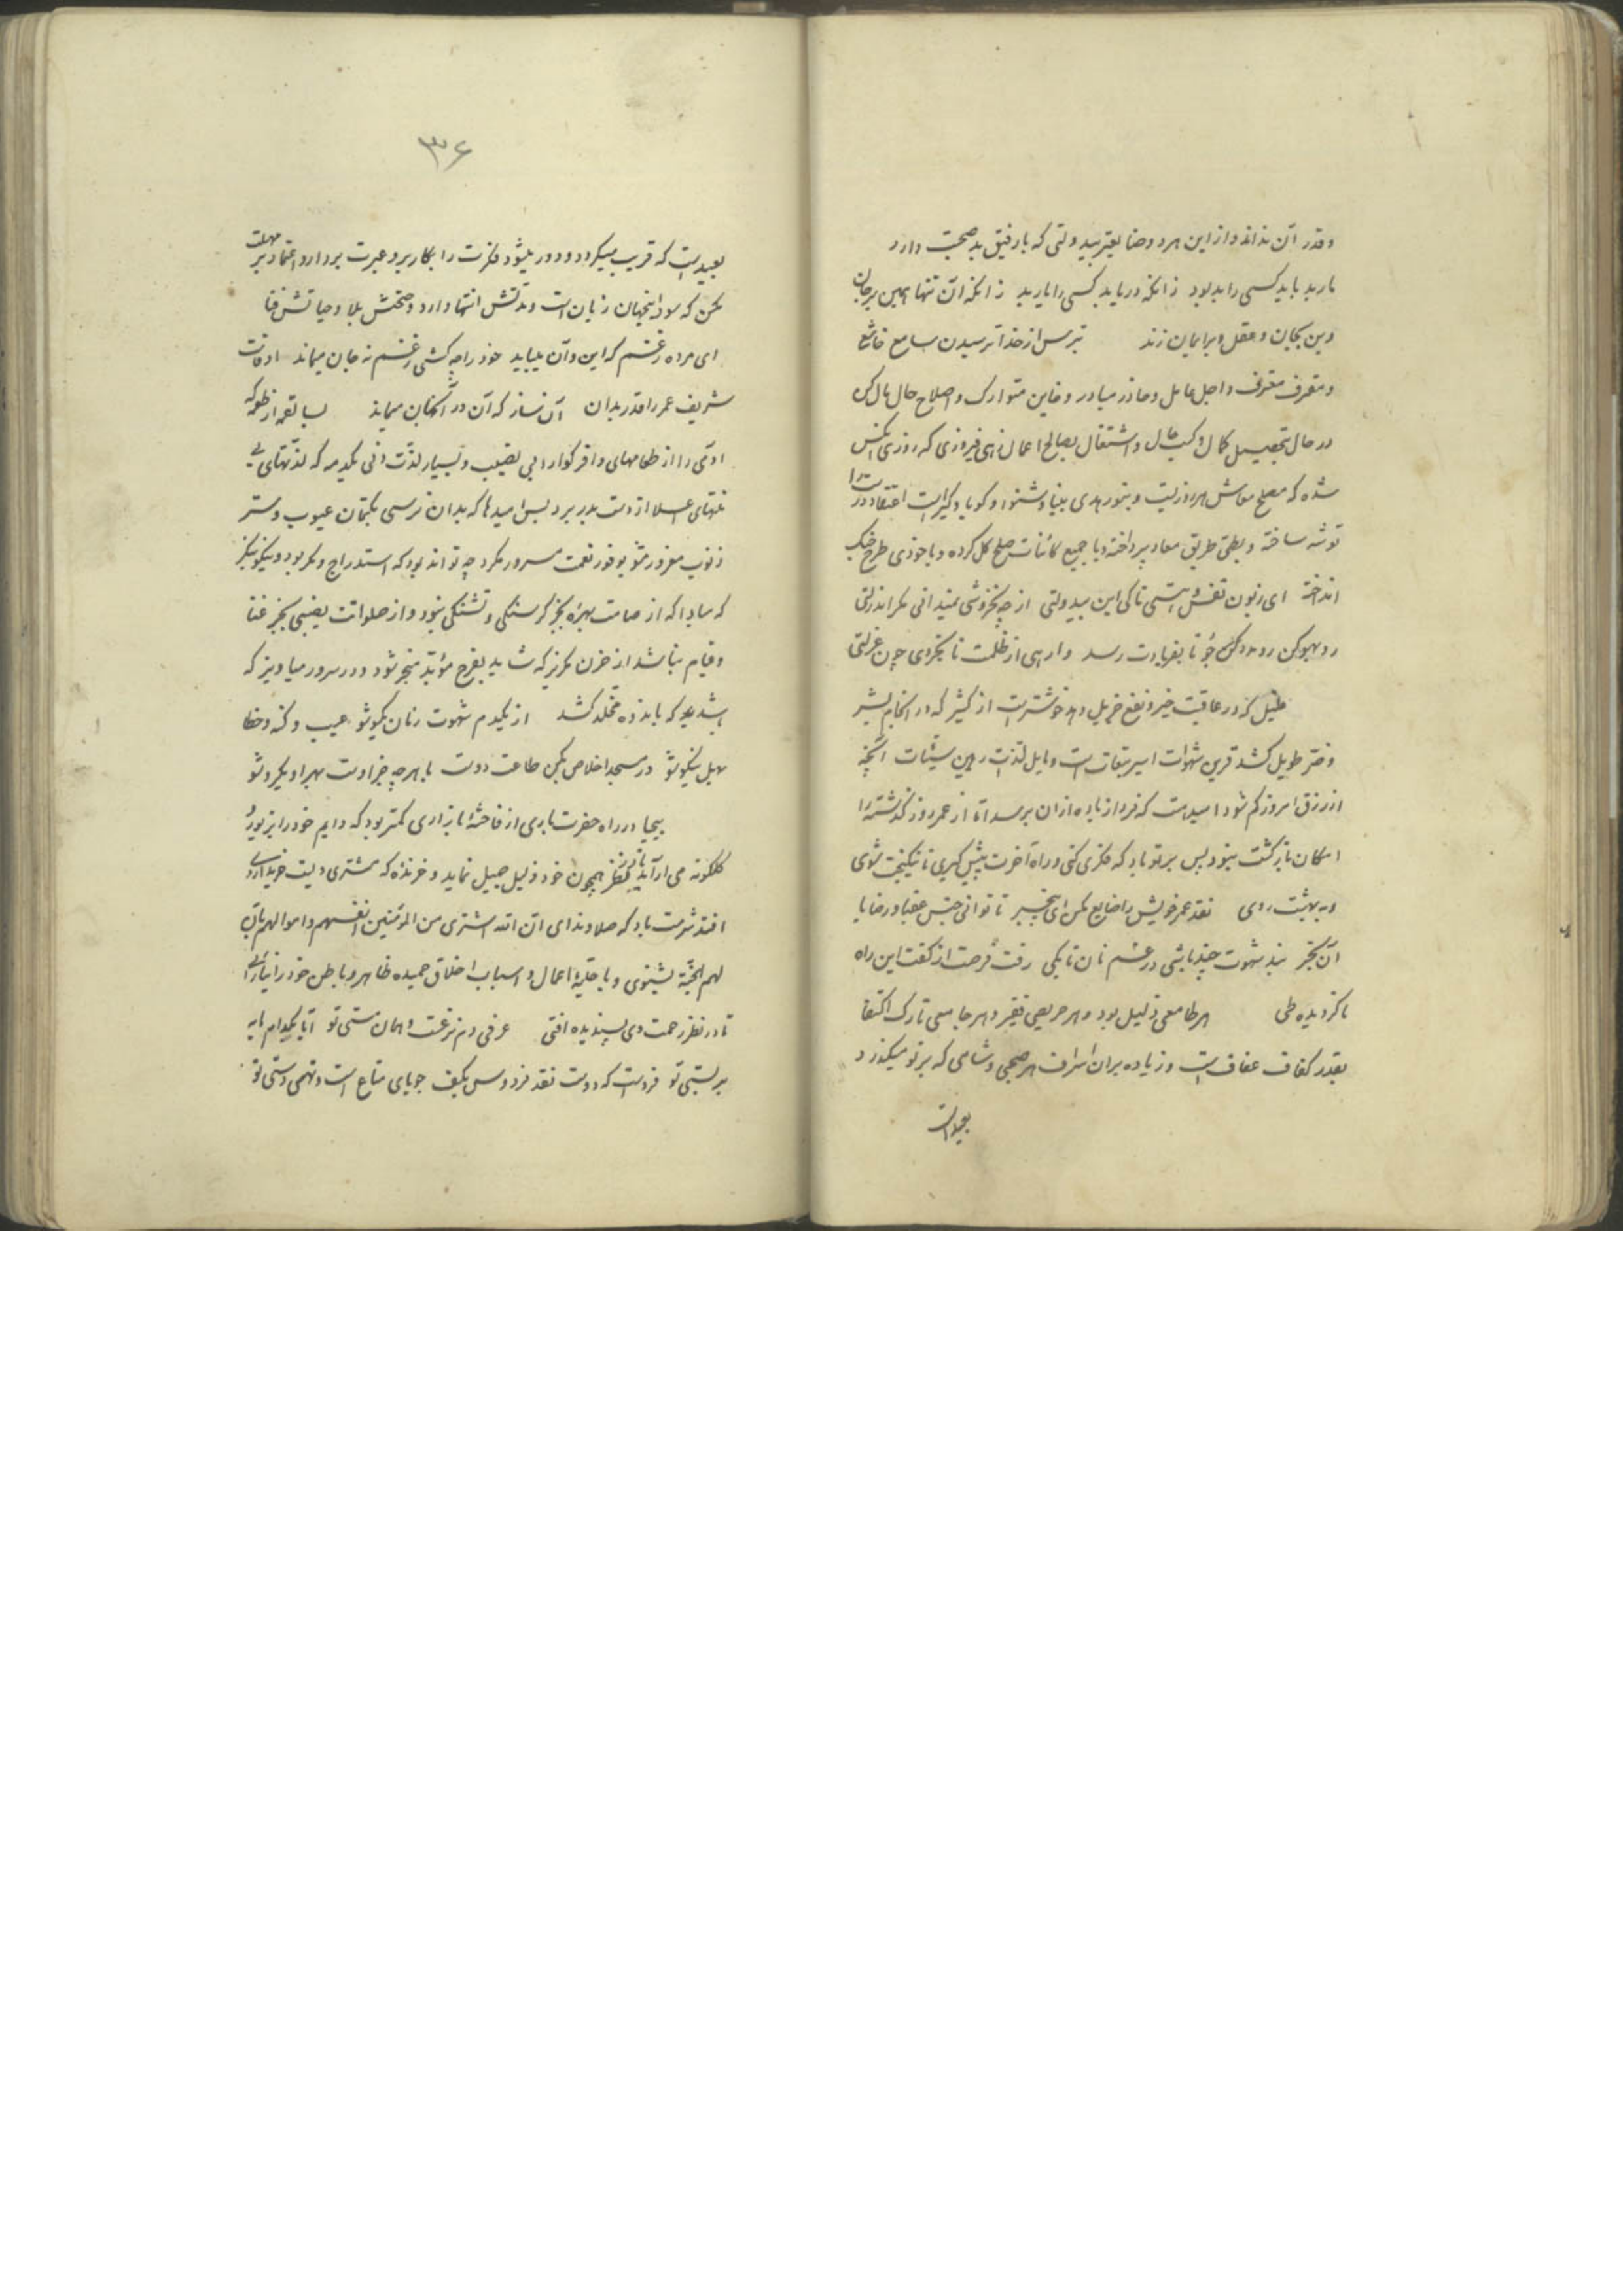 وقدر آن نداند و از این هر دو وضا یقتر بیدولتی که با رفیق بد صحبت دارد
مار بد باید کسی را بد بود زانکه دریابد کسی را یار بد زانکه آن تنها همین بر جان
و این بجان و عقل و بر ایمان زند بترس از خدا ترسیدن سامع خاشع
و مقترف معترف و اجل عامل و حاذر مبادر و اصلاح حال مآل کن
در حال تحصیل کمال و کسب حال و اشتغال بصالح اعمال زهی فیروزی که روزی آنکس
شده که مصلح معاش هر روز نیست و بنور هدی بینا و شنوا و گویا و گیراست اعتقاد درست را
توشه ساخته و بطی طریق معاد پرداخته و با جمیع کائنات صلح کل کرده و با خودی طرح جنگ
انداخته ای زبون نفس و هستی تا کی این بیدولتی از چه بخروشی نمیدانی مگر اندر لتی
رو بهو کن رو مدد کن جو تا بفریادت رسد وارهی از ظلمت تا بگردی چون غزلتی
قلیل که در عاقبت خیر و نفع جزیل دهد خوشتر است از کثیر که در انجام بشر
و ضر طویل کشد قرین شهوات اسیر تبعات است و مایل لذت رهین سیئات آنچه
از رزق امروز کم شود امید هست که فردا زیاده از آن برسد اما از عمر روز گذشته را
امکان بازگشت نبود پس بر تو باد که فکری کنی و راه آخرت پیش گیری تا نیکبخت شوی
و به بهشت روی نقد عمر خویش را ضایع مکن ای بیخبر تا توانی جنس عقبا و رضا یا
آن بخر بند شهوت چند باشی در غم نان تا بکی رفت فرصت از کفت این راه
نا گردیده طی هر طامعی ذلیل بود و هر حریصی فقیر و هر جامعی تارک اکتفا
بقدر کفاف عفاف است و زیاده بر آن اسراف هر صبحی و شامی که بر تو میگذرد
بعید است
۳۶
بعید است که قریب میگردد و دور میشود فکرت را بکار بر و عبرت بردار و اعتماد بر مهلت
مکن که سود اینجهان زیان است و مدتش انتها دارد و صحتش بلا و حیاتش فنا
ای مرده ز غم که این و آن میباید خود را چه کشی ز غم نه جان میماند اوقات
شریف عمر را قدر بدان آن ساز که آن در آنجهان میماند بسا لقمه از طعمه که
آدمی را از طعامهای وافر گوارا بی نصیب و بسیار لذت دنی یکدمه که لذتهای بی
نهای اعلا از دست بدر برد بس امیدها که بدان نرسی بکتمان عیوب و ستر
ذنوب مغرور مشو بوفور نعمت مسرور مگرد چه تواند بود که استدراج و مکر بود و نیکو نگر
که مبادا که از صیامت بهره بجز گرسنگی و تشنگی نبود و از صلواتت نصیبی بجز غنا
و قیام نباشد از حزن مگریز که شاید بفرح مؤبد منجر شود و در سرور میاویز که
باندوه مخلد کشد از یکدم شهوت زنان یکسو شو عیب و گنه و خطا
بهل نیکو شو در مسجد اخلاص بکن طاعت دوست با هر چه جز اوست بهر او یکرو شو
بیحیا در راه حضرت باری از فاحشه بازاری کمتر بود که دایم خود را بزیور و
گلگونه می آراید تا در نظر همچون خود ذلیل جمیل نماید و خرنده که مشتری دلیست خریداری
افتد شرمت باد که صلا و ندای ان الله اشتری من المؤمنین انفسهم و اموالهم بان
لهم الجنه بشنوی و با حلیه اعمال و اسباب اخلاق حمیده ظاهر و باطن خود را نیارائی
تا در نظر رحمت وی پسندیده افتی عرفی دم نزعست و همان مستی تو آیا بکدام مایه
بر بستی تو فرداست که دوست نقد فردوس بکف جویای متاع است و تهی دستی تو